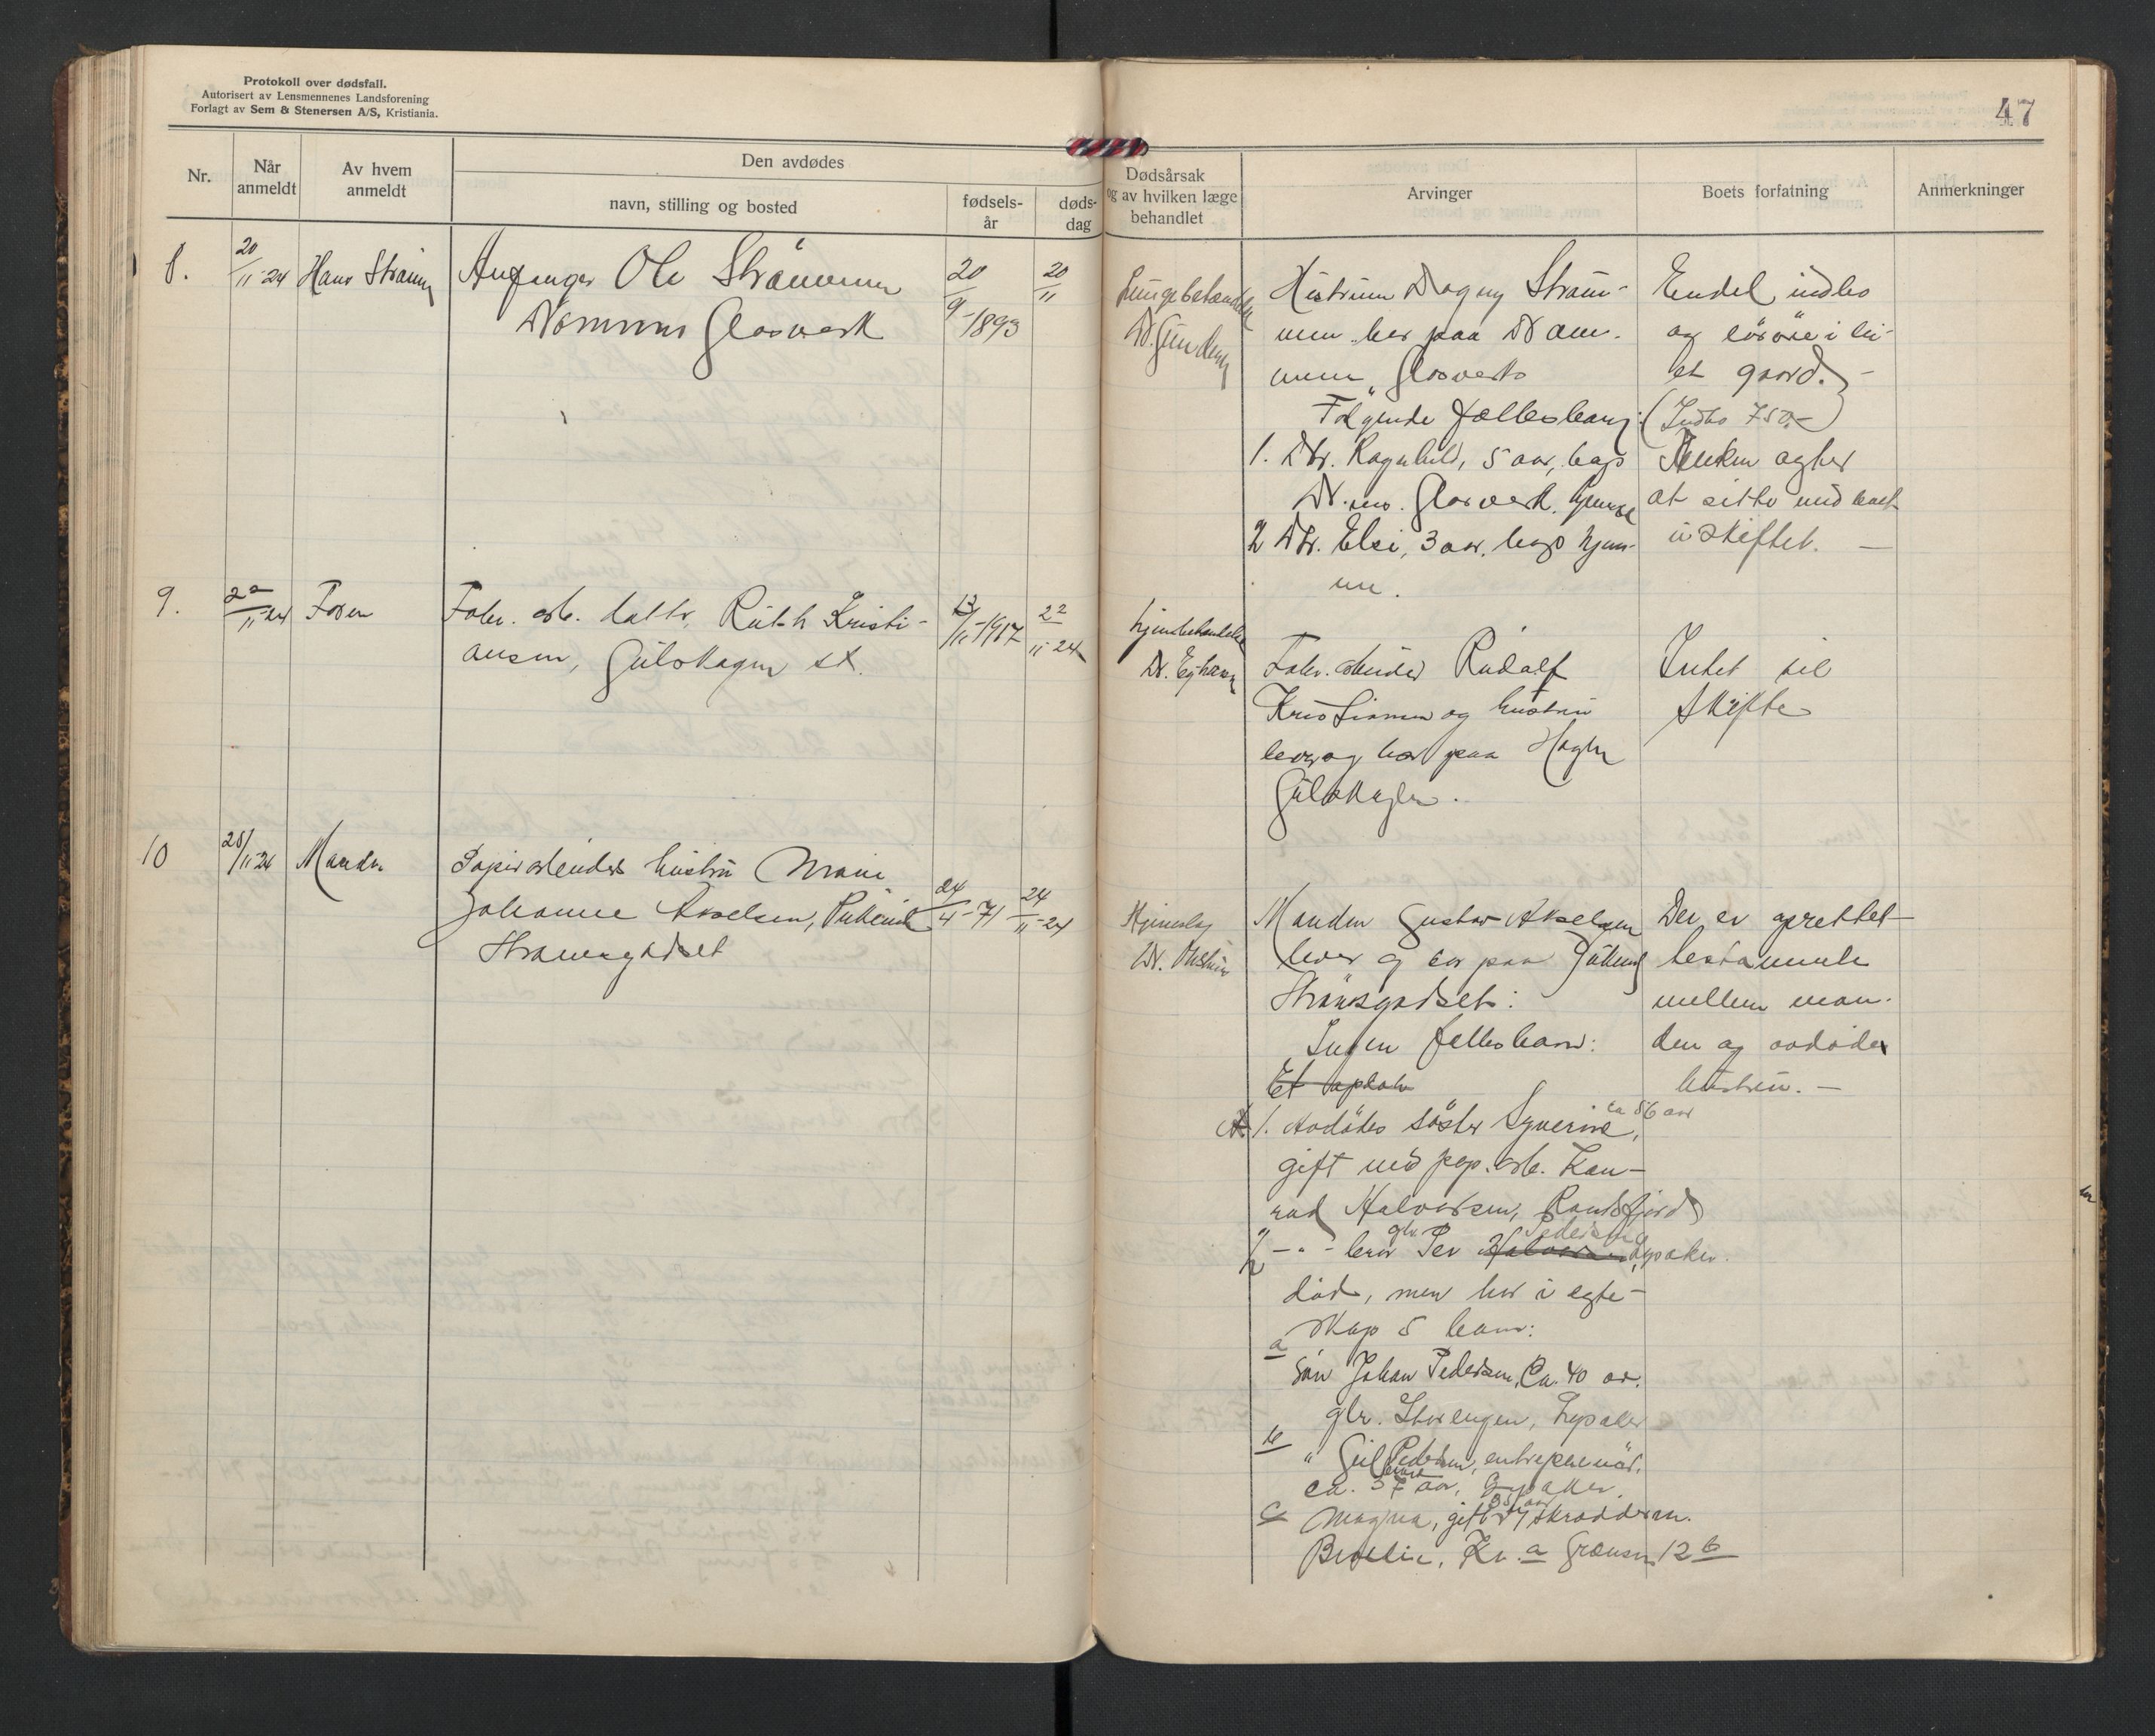 Protokoll over dødsfall.
Autorisert av Lensmennenes Landsforening
Forlagt av Sem & Stenersen A/S, Kristiania.
47
Nr.
Når anmeldt
Av hvem anmeldt
Den avdødes
navn, stilling og bosted
fødsels-år
døds-dag
Dødsårsak og av hvilken læge behandlet
Arvinger
Boets forfatning
Anmerkninger
8.
20/11-24
Hans
Ole
Glasverk
20/9-1893
20/11
Dr.
Hustruen Dagny Strøm-
men bor paa Dram-
mens Glasverk
Følgende fællesbarn:
1. Dtr. Ragnhild, 5 aar, bags
Dr.ms. Glasverk, hjemme
2 Dtr. Elsi, 3 aar, bags hjem-
me.
Endel indbo
og løsøre i li-
et gaard. -
(Indbo 750,-)
Enken agter
at sitte med boet
uskiftet. -
9.
22/11-24
Faren
Fabr. arb. datter Ruth Kristi-
ansen, Gulskogen st.
13/11-1917
22/11-24
Dr.
Fabr. arbeider Rudolf
Kristiansen og hustru
lever og bor paa
Gulskogen.
Intet til
skifte
10
28/11-24
Manden
Papirarbeider hustru Marie
Johanne Akselsen,
Strømsgodset
24/4-71
24/11-24
Hjerneslag
Dr.
Manden Gustav Akselsen
lever og bor paa
Strømsgodset:
Ingen fellesbarn:
Et
1. Avdødes søster Syverine, ca 56 aar
gift med pap. arb. Kon-
rad Halvorsen, Randsfjord
2 - " - bror Per Pedersen, Lysaker.
død, men har i egte-
skap 5 barn:
a
Søn Johan Pedersen, Ca. 40 aar.
glv. Storengen, Lysaker
b
" Pedersen, entreprenør,
ca. 37 aar, Lysaker.
c Magna, gift m/ skrædderm.
Kr.a Grænsen 12 b
Der er oprettet
testamente
mellem man-
den og avdøde
hustru. -